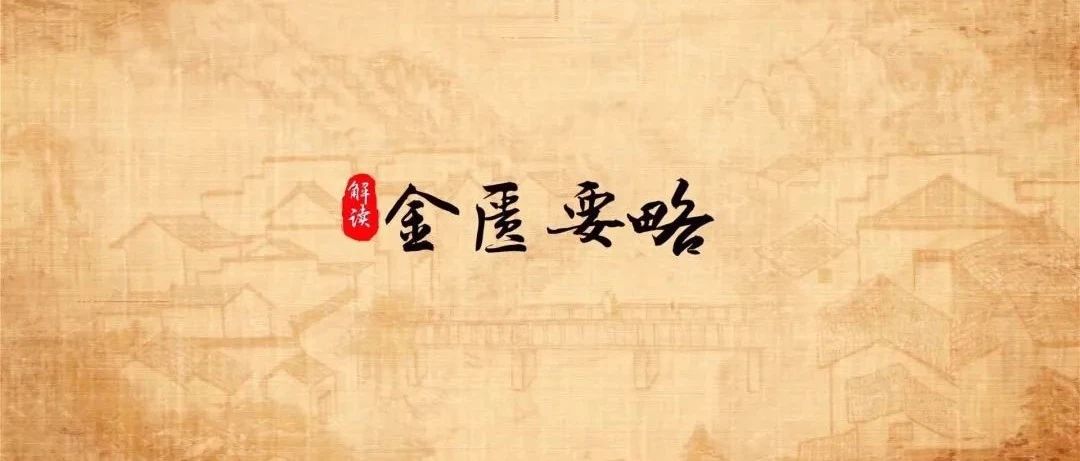 解读
金匮要略